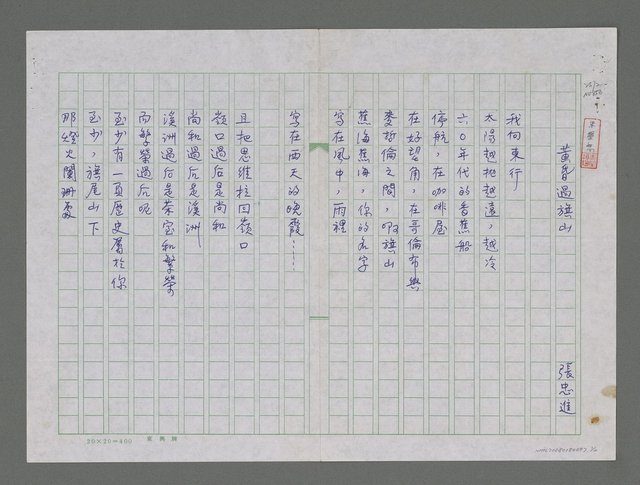 黃昏過旗山
張忠進
我向東行
太陽越拋越遠，越冷
六○年代的香蕉船
停航，在咖啡屋
在好望角，在哥倫布與
麥哲倫之間，啊旗山
蕉海蕉海，你的名字
寫在風中，雨裡
寫在西天的晚霞……
且把思維拉回嶺口
嶺口過后是尚和
尚和過后是溪洲
溪洲過后是榮宝和繁榮
而繁榮過后呢
至少有一頁歷史屬於你
至少，旗尾山下
那燈火闌珊處
20×20=400